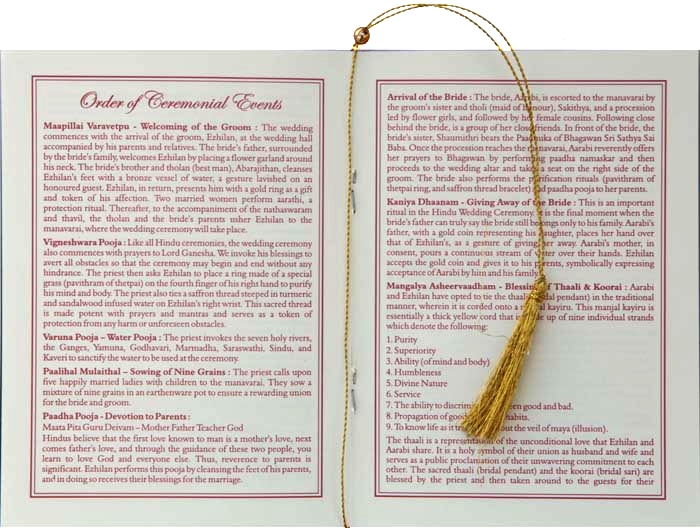 Order of Ceremonial Events
Maapillai Varavetpu - Welcoming of the Groom : The wedding
commences with the arrival of the groom, Ezhilan, at the wedding hall
accompanied by his parents and relatives. The bride's father, surrounded
by the bride's family, welcomes Ezhilan by placing a flower garland around
his neck. The bride's brother and tholan (best man), Abarajithan, cleanses
Ezhilan's feet with a bronze vessel of water, a gesture lavished on an
honoured guest. Ezhilan, in return, presents him with a gold ring as a gift
and token of his affection. Two married women perform aarathi, a
protection ritual. Thereafter, to the accompaniment of the nathaswaram
and thavil, the tholan and the bride's parents usher Ezhilan to the
manavarai, where the wedding ceremony will take place.
Vigneshwara Pooja : Like all Hindu ceremonies, the wedding ceremony
also commences with prayers to Lord Ganesha. We invoke his blessings to
avert all obstacles so that the ceremony may begin and end without any
hindrance. The priest then asks Ezhilan to place a ring made of a special
grass (pavithram of thetpai) on the fourth finger of his right hand to purify
his mind and body. The priest also ties a saffron thread steeped in turmeric
and sandalwood infused water on Ezhilan's right wrist. This sacred thread
is made potent with prayers and mantras and serves as a token of
protection from any harm or unforeseen obstacles.
Varuna Pooja – Water Pooja : The priest invokes the seven holy rivers,
the Ganges, Yamuna, Godhavari, Marmadha, Saraswathi, Sindu, and
Kaveri to sanctify the water to be used at the ceremony.
Paalihal Mulaithal – Sowing of Nine Grains : The priest calls upon
five happily married ladies with children to the manavarai. They sow a
mixture of nine grains in an earthenware pot to ensure a rewarding union
for the bride and groom.
Paadha Pooja - Devotion to Parents :
Maata Pita Guru Deivam – Mother Father Teacher God
Hindus believe that the first love known to man is a mother's love, next
comes father's love, and through the guidance of these two people, you
learn to love God and everyone else. Thus, reverence to parents is
significant. Ezhilan performs this pooja by cleansing the feet of his parents,
and in doing so receives their blessings for the marriage.
Arrival of the Bride : The bride, Aarabi, is escorted to the manavarai by
the groom's sister and tholi (maid of honour), Sakithya, and a procession
led by flower girls, and followed by her female cousins. Following close
behind the bride, is a group of her close friends. In front of the bride, the
bride's sister, Shaumithri bears the Paaduka of Bhagawan Sri Sathya Sai
Baba. Once the procession reaches the manavarai, Aarabi reverently offers
her prayers to Bhagawan by performing paadha namaskar and then
proceeds to the wedding altar and takes a seat on the right side of the
groom. The bride also performs the purification rituals (pavithram of
thetpai ring, and saffron thread bracelet) and paadha pooja to her parents.
Kaniya Dhaanam - Giving Away of the Bride : This is an important
ritual in the Hindu Wedding Ceremony. It is the final moment when the
bride's father can truly say the bride still belongs only to his family. Aarabi's
father, with a gold coin representing his daughter, places her hand over
that of Ezhilan's, as a gesture of giving her away. Aarabi's mother, in
consent, pours a continuous stream of water over their hands. Ezhilan
accepts the gold coin and gives it to his parents, symbolically expressing
acceptance of Aarabi by him and his family.
Mangalya Asheervaadham - Blessing of Thaali & Koorai : Aarabi
and Ezhilan have opted to tie the thaali (bridal pendant) in the traditional
manner, wherein it is corded onto a kayiru. This manjal kayiru is
essentially a thick yellow cord that is made up of nine individual strands
which denote the following:
1. Purity
2. Superiority
3. Ability (of mind and body)
4. Humbleness
5. Divine Nature
6. Service
7. The ability to discriminate between good and bad.
8. Propagation of good habits.
9. To know life as it the veil of maya (illusion).
The thaali is a representation of the unconditional love that Ezhilan and
Aarabi share. It is a holy symbol of their union as husband and wife and
serves as a public proclamation of their unwavering commitment to each
other. The sacred thaali (bridal pendant) and the koorai (bridal sari) are
blessed by the priest and then taken around to the guests for their